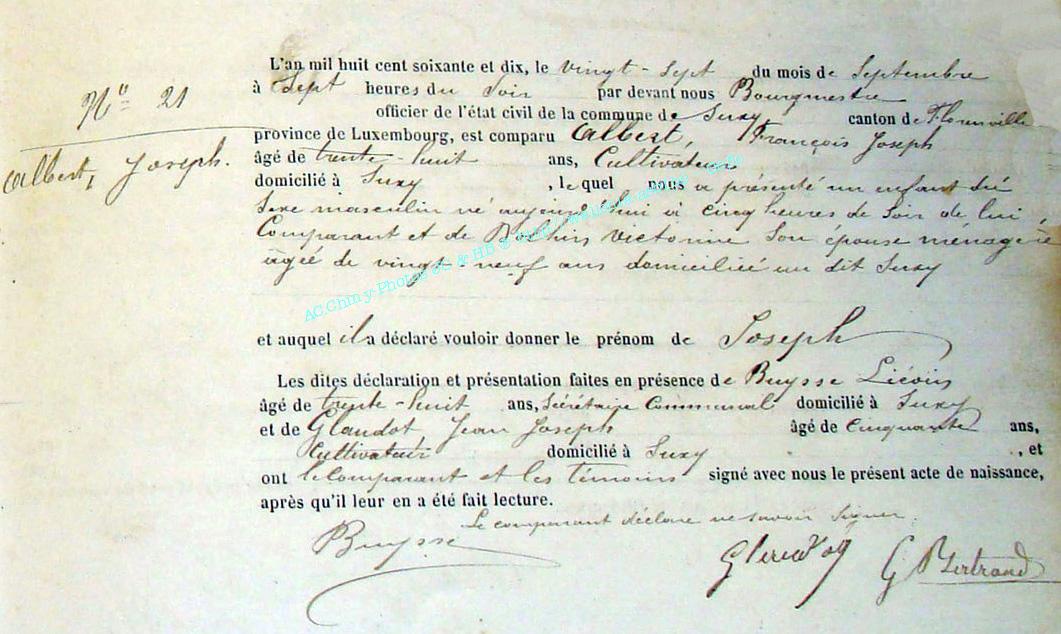 N° 21
Albert, Joseph.
L'an mil huit cent soixante et dix, le vingt-sept du mois de Septembre
à Sept heures du Soir par devant nous Bourgmestre
officier de l'état civil de la commune de Suxy canton de Florenville
province de Luxembourg, est comparu Albert, François Joseph
âgé de trente-huit ans, Cultivateur
domicilié à Suxy , le quel nous a présenté un enfant du
Sexe masculin né aujourd'hui à cinq heures de Soir de lui,
Comparant et de Victorine Son épouse ménagère
agée de vingt-neuf ans domiciliée au dit Suxy
et auquel il a déclaré vouloir donner le prénom de Joseph
Les dites déclaration et présentation faites en présence de Buysse Liévin
âgé de trente-huit ans, Sécrétaire Communal domicilié à Suxy
et de Glaudot Jean Joseph âgé de cinquante ans,
Cultivateur domicilié à Suxy , et
ont le comparant et les témoins signé avec nous le présent acte de naissance,
après qu'il leur en a été fait lecture.
Le comparant déclare ne savoir signer.
Buysse
G Bertrand
AC Chiny Photos